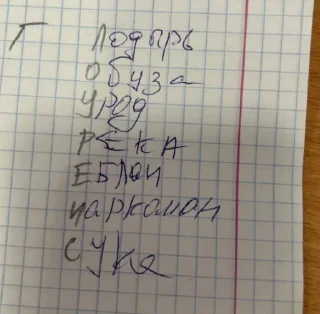 Г Лодырь
Обуза
Урод
РЕКА
ЕБЛан
Наркоман
Сука